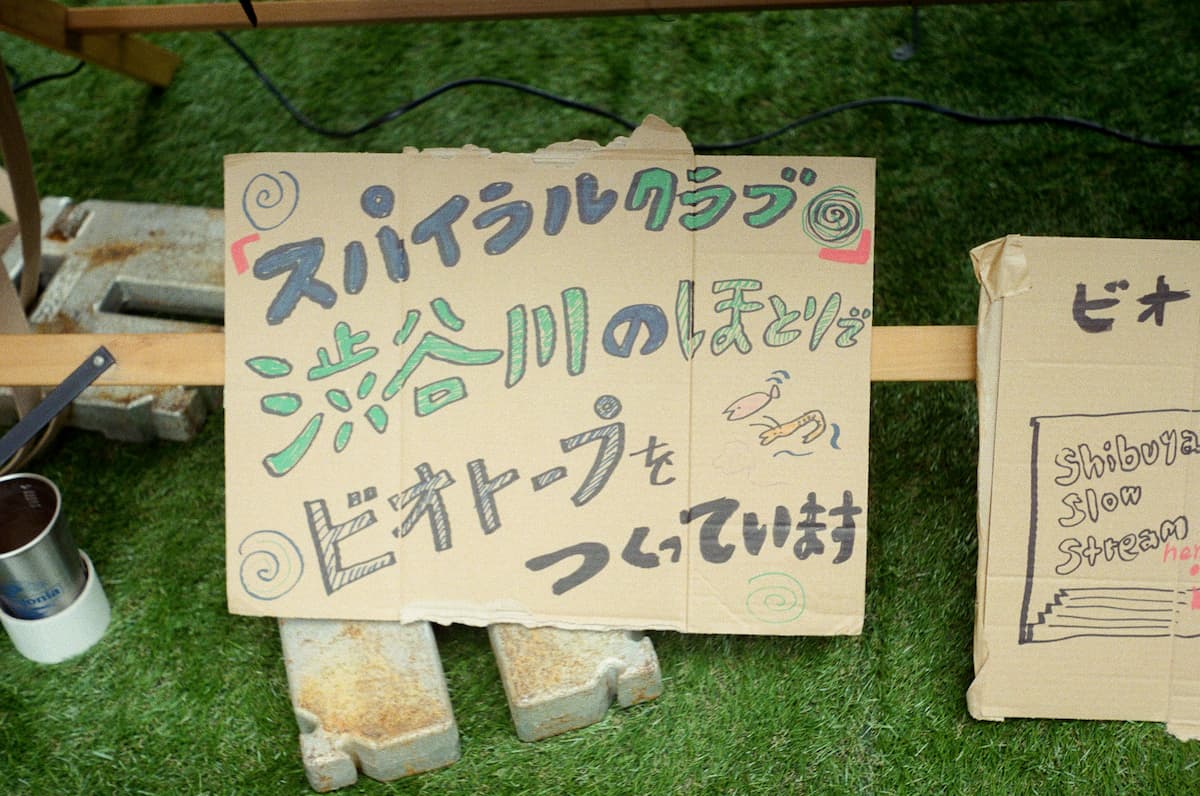 「スパイラルクラブ」
渋谷川のほとりで
ビオトープを
つくっています
ビオ
Shibuya
Slow
Stream
her